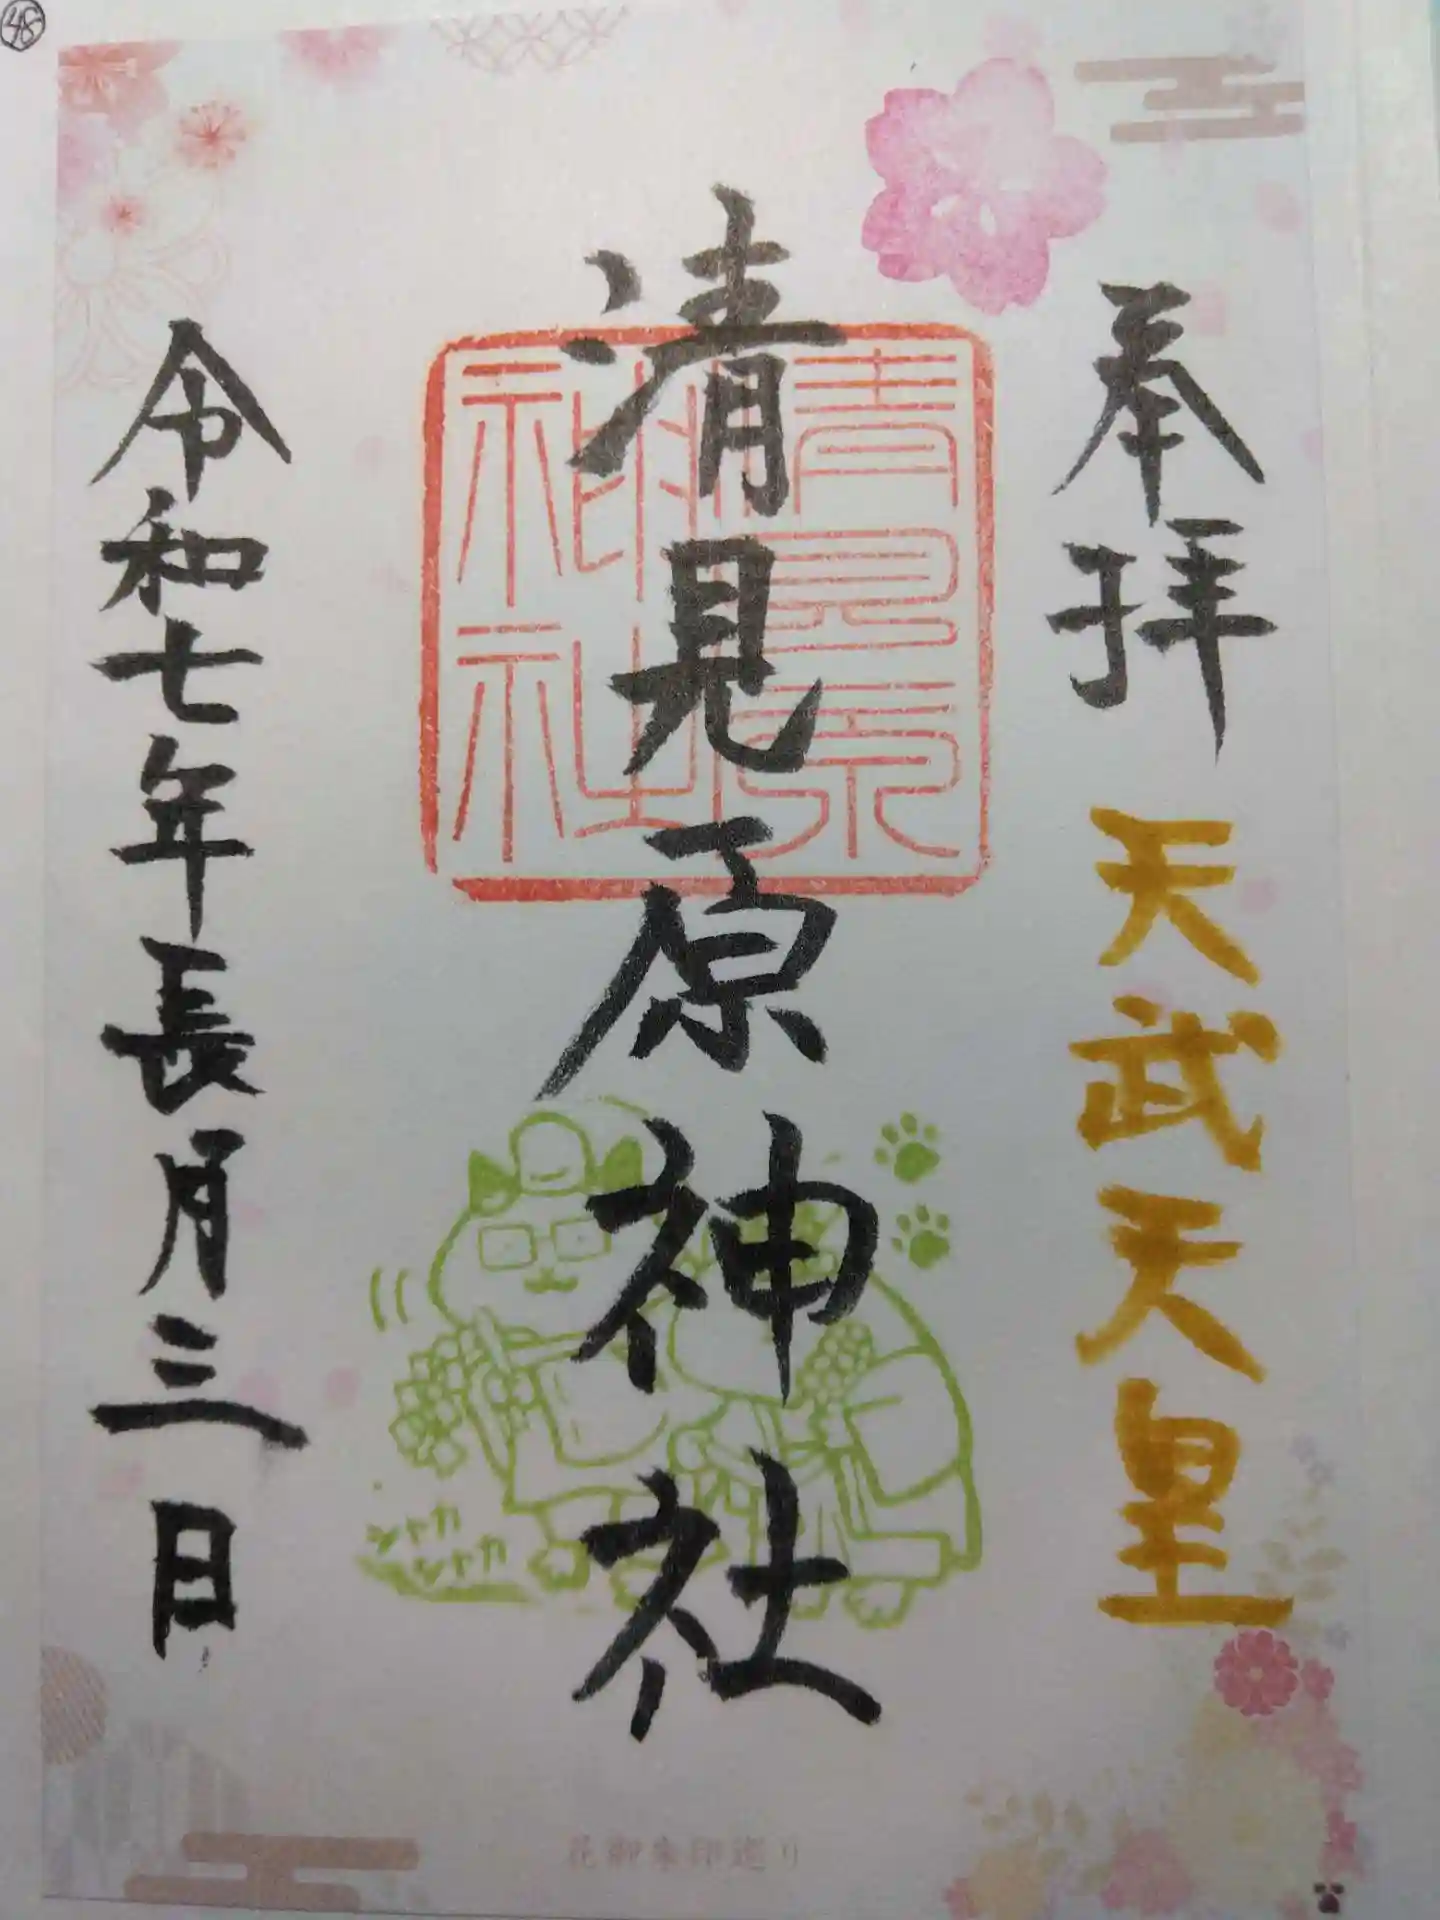 48
奉拝
天武天皇
清見原神社
清見原
神社
シャカ
シャカ
令和七年長月三日
花御朱印巡り